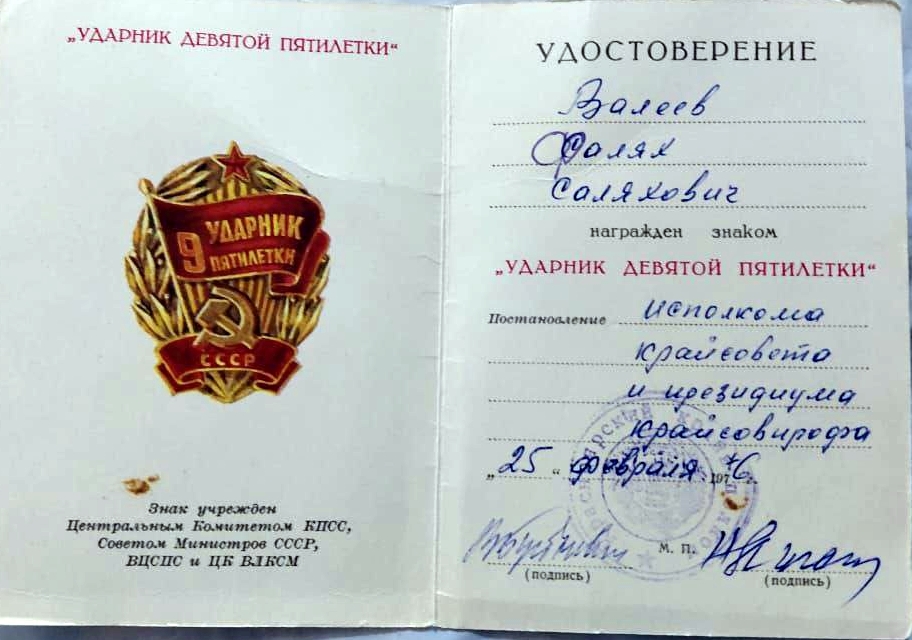 „УДАРНИК ДЕВЯТОЙ ПЯТИЛЕТКИ“
9 УДАРНИК
ПЯТИЛЕТКИ
СССР
Знак учрежден
Центральным Комитетом КПСС,
Советом Министров СССР,
ВЦСПС и ЦК ВЛКСМ
УДОСТОВЕРЕНИЕ
Валеев
Фалях
Саляхович
награжден знаком
„УДАРНИК ДЕВЯТОЙ ПЯТИЛЕТКИ“
Постановление Исполкома
крайсовета
и президиума
крайсовпрофа
„25“ февраля 1976 г.
М. П.
(подпись)
(подпись)